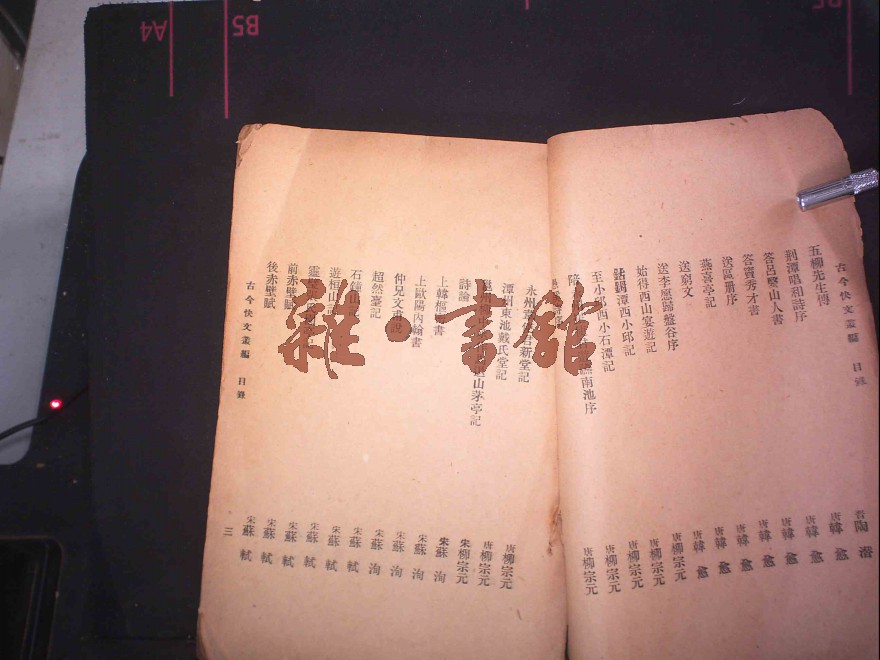 A4
B5
古今快文叢編 目錄
五柳先生傳 晉陶潛
荆潭唱和詩序 唐韓愈
答呂毉山人書 唐韓愈
答竇秀才書 唐韓愈
送區册序 唐韓愈
燕喜亭記 唐韓愈
送窮文 唐韓愈
送李愿歸盤谷序 唐韓愈
始得西山宴遊記 唐柳宗元
鈷鉧潭西小邱記 唐柳宗元
至小邱西小石潭記 唐柳宗元
陪 南池序 唐柳宗元
永州 新堂記 唐柳宗元
潭州東池戴氏堂記 唐柳宗元
山茅亭記 宋柳宗元
詩論 宋蘇洵
上韓樞 書 宋蘇洵
上歐陽內翰書 宋蘇洵
仲兄文甫說 宋蘇洵
超然臺記 宋蘇軾
石鐘山記 宋蘇軾
遊桓山記 宋蘇軾
靈 宋蘇軾
前赤壁賦 宋蘇軾
後赤壁賦 宋蘇軾
古今快文叢編 目錄 三
雜·書館